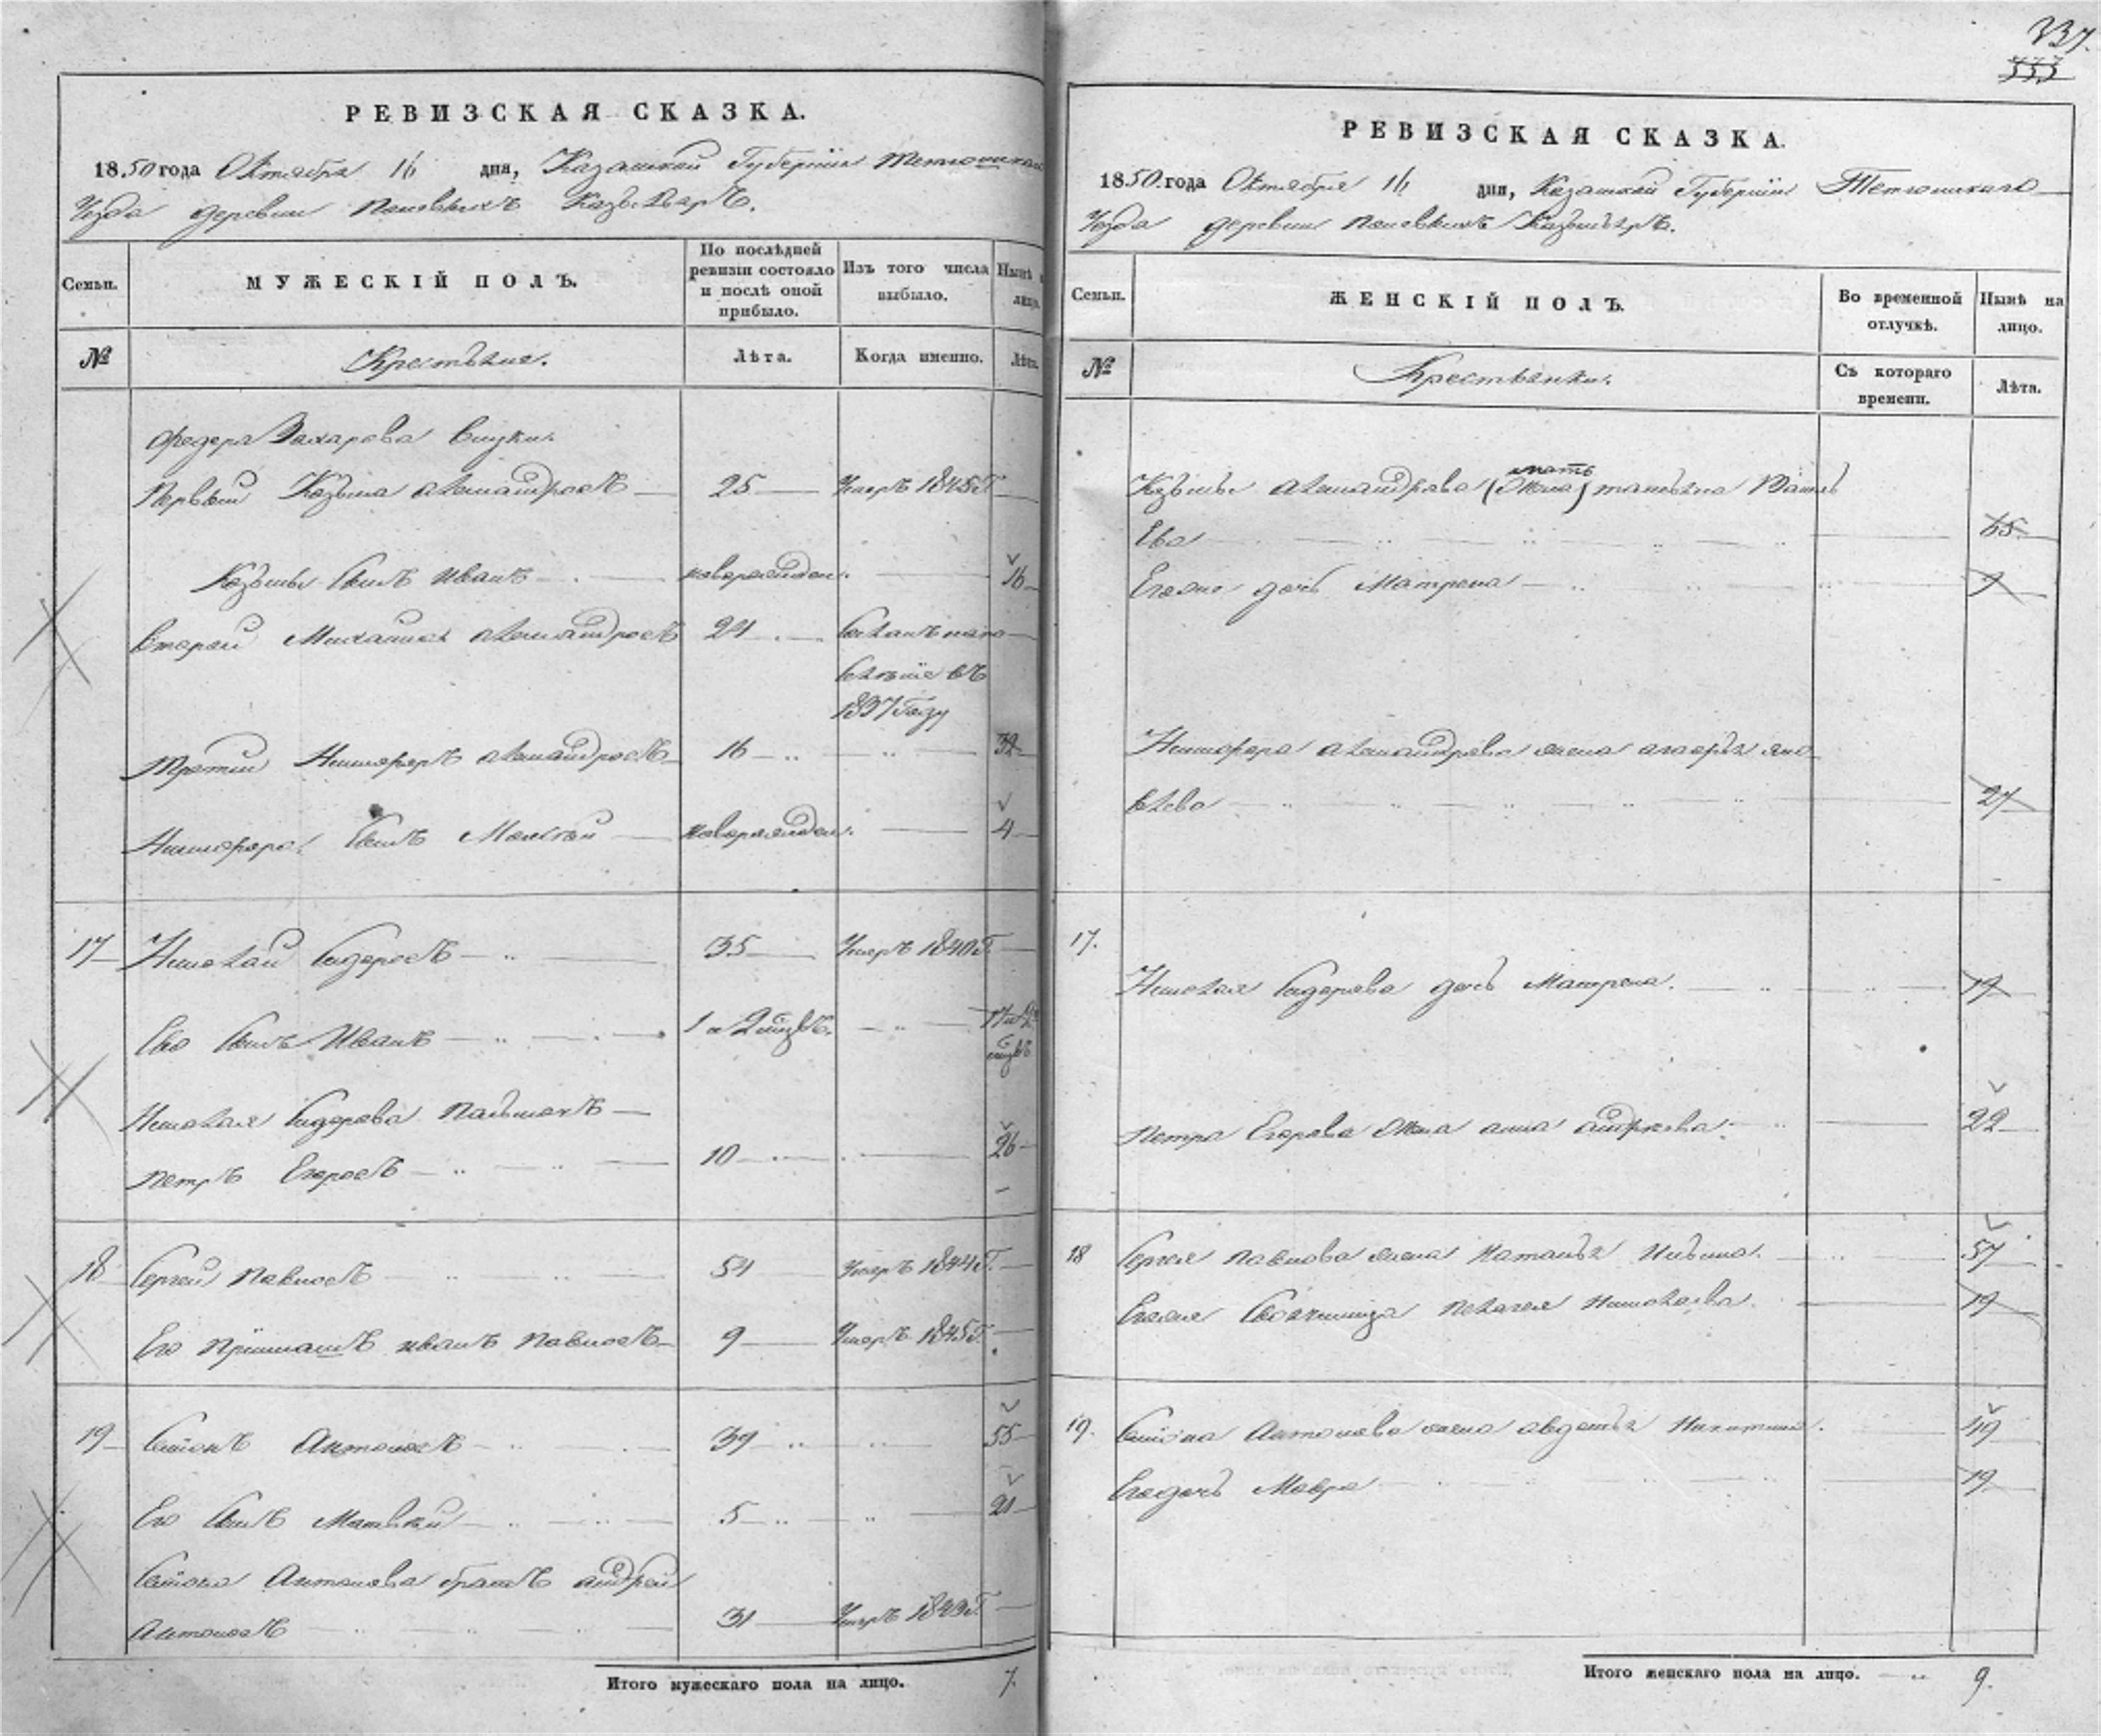 337.
333
РЕВИЗСКАЯ СКАЗКА.
1850 года Октября 16 дня, Казанской Губернiи Тетюшскаго
Уезда деревни Казыльяръ.
Семьи.
МУЖЕСКIЙ ПОЛЪ.
По послѣдней ревизiи состояло и послѣ оной прибыло.
Изъ того числа выбыло.
Нынѣ лицо.
№
Крестьяне.
Лѣта.
Когда именно.
Лѣта.
Федора Захарова внуки.
Первый Козьма 25 Умеръ 1845 Г
Козьмы Сынъ Иванъ новорожден. 16
Второй Михаила 21
1837 Году
Третiй Никифоръ 16 32
Никифора Сынъ новорожден. 4
17 Николай Сидоровъ 35 Умеръ 1840 Г.
Его Сынъ Иванъ 1 и 2 мѣсяцъ. 17
Николая Сидорова племянникъ
Петръ Егоровъ 10 26
18 Сергей Павловъ 51 Умеръ 1844 Г.
Его прiимышъ Иванъ Павловъ 9 Умеръ 1845 Г.
19 Семёнъ Антоновъ 39 55
Его Сынъ Матвѣй 5 21
Семёна Антонова братъ Андрей
Антоновъ 31 Умеръ 1849 Г.
Итого мужескаго пола на лицо. 7.
РЕВИЗСКАЯ СКАЗКА.
1850 года Октября 16 дня, Казанской Губернiи Тетюшскаго
Уезда деревни Казыльяръ.
Семьи.
ЖЕНСКIЙ ПОЛЪ.
Во временной отлучкѣ.
Нынѣ на лицо.
№
Крестьянки.
Съ котораго времени.
Лѣта.
мать
Козьмы (Жена) Татьяна
Ева 65
Егоже дочь Матрена 9
Никифора жена
27
17.
Николая Сидорова дочь Матрена. 19
Петра Егорова Жена Анна 22
18 Сергея Павлова жена Наталья Ильина. 57
Егоже Своячиница Пелагея Николаева. 19
19. Семёна Антонова жена Авдотья Никитина. 49
Его дочь Мавра 19
Итого женскаго пола на лицо. 9.